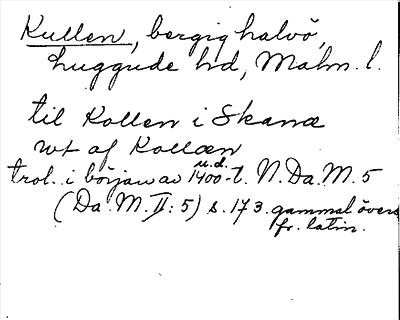 Kullen, bergig halvö,
Luggude hd, Malm. l.
til Kollen i Skanæ
wt af Kollæn
trol. i början av 1400-t. N.Da.M. 5
u.d.
(Da.M.II:5) s.173. gammal övers
fr. latin.